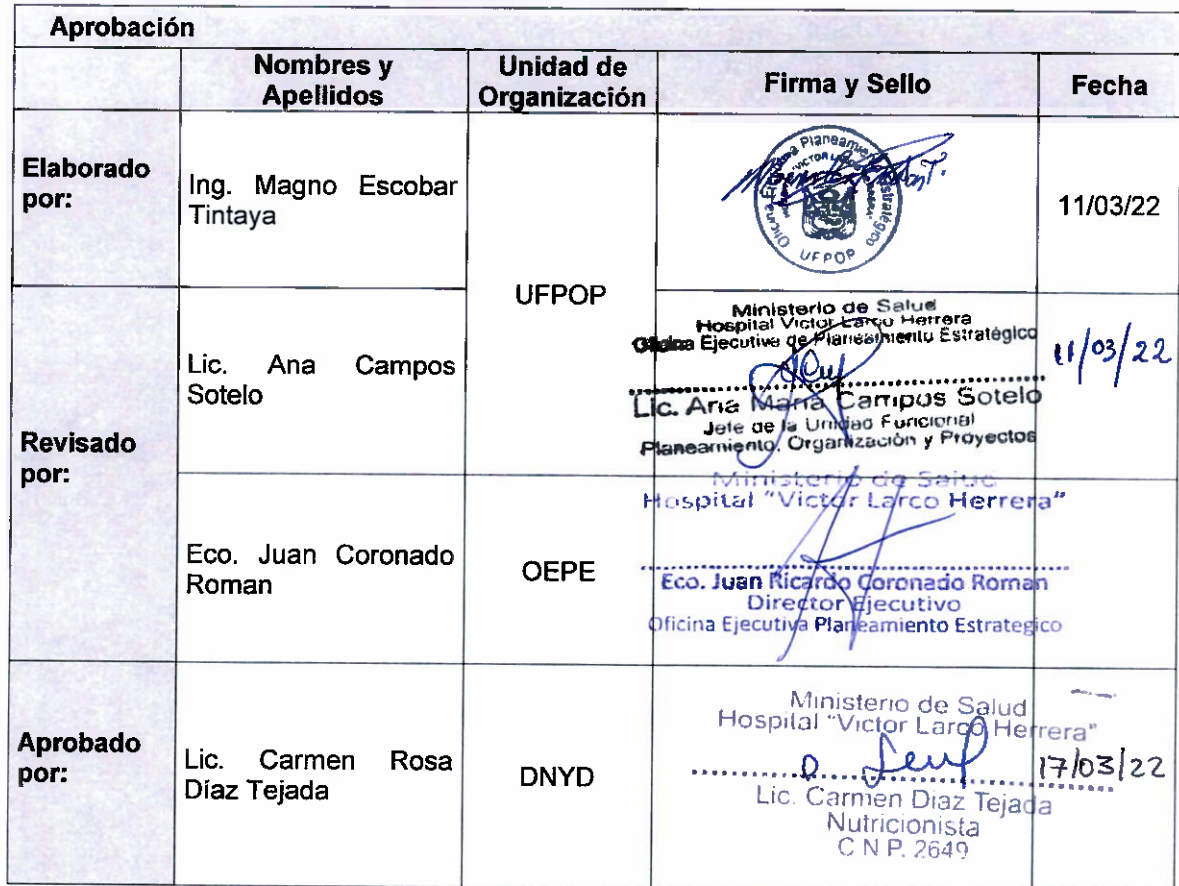 Aprobación
Nombres y
Apellidos
Unidad de
Organización
Firma y Sello
Fecha
Elaborado
por:
Ing. Magno Escobar
Tintaya
UFPOP
Planeamie
UFPOP
11/03/22
Revisado
por:
Lic. Ana Campos
Sotelo
Ministerio de Salud
Hospital Victor Larco Herrera
Ejecutiva de Planeamiento Estratégico
Lic. Ana Maria Campos Sotelo
Jefe de la Unidad Funcional
Planeamiento, Organización y Proyectos
11/03/22
Eco. Juan Coronado
Roman
OEPE
Ministerio de Salud
Hospital "Victor Larco Herrera"
Eco. Juan Ricardo Coronado Roman
Director Ejecutivo
Oficina Ejecutiva Planeamiento Estrategico
Aprobado
por:
Lic. Carmen Rosa
Díaz Tejada
DNYD
Ministerio de Salud
Hospital "Victor Larco Herrera"
Lic. Carmen Diaz Tejada
Nutricionista
C N P. 2649
17/03/22